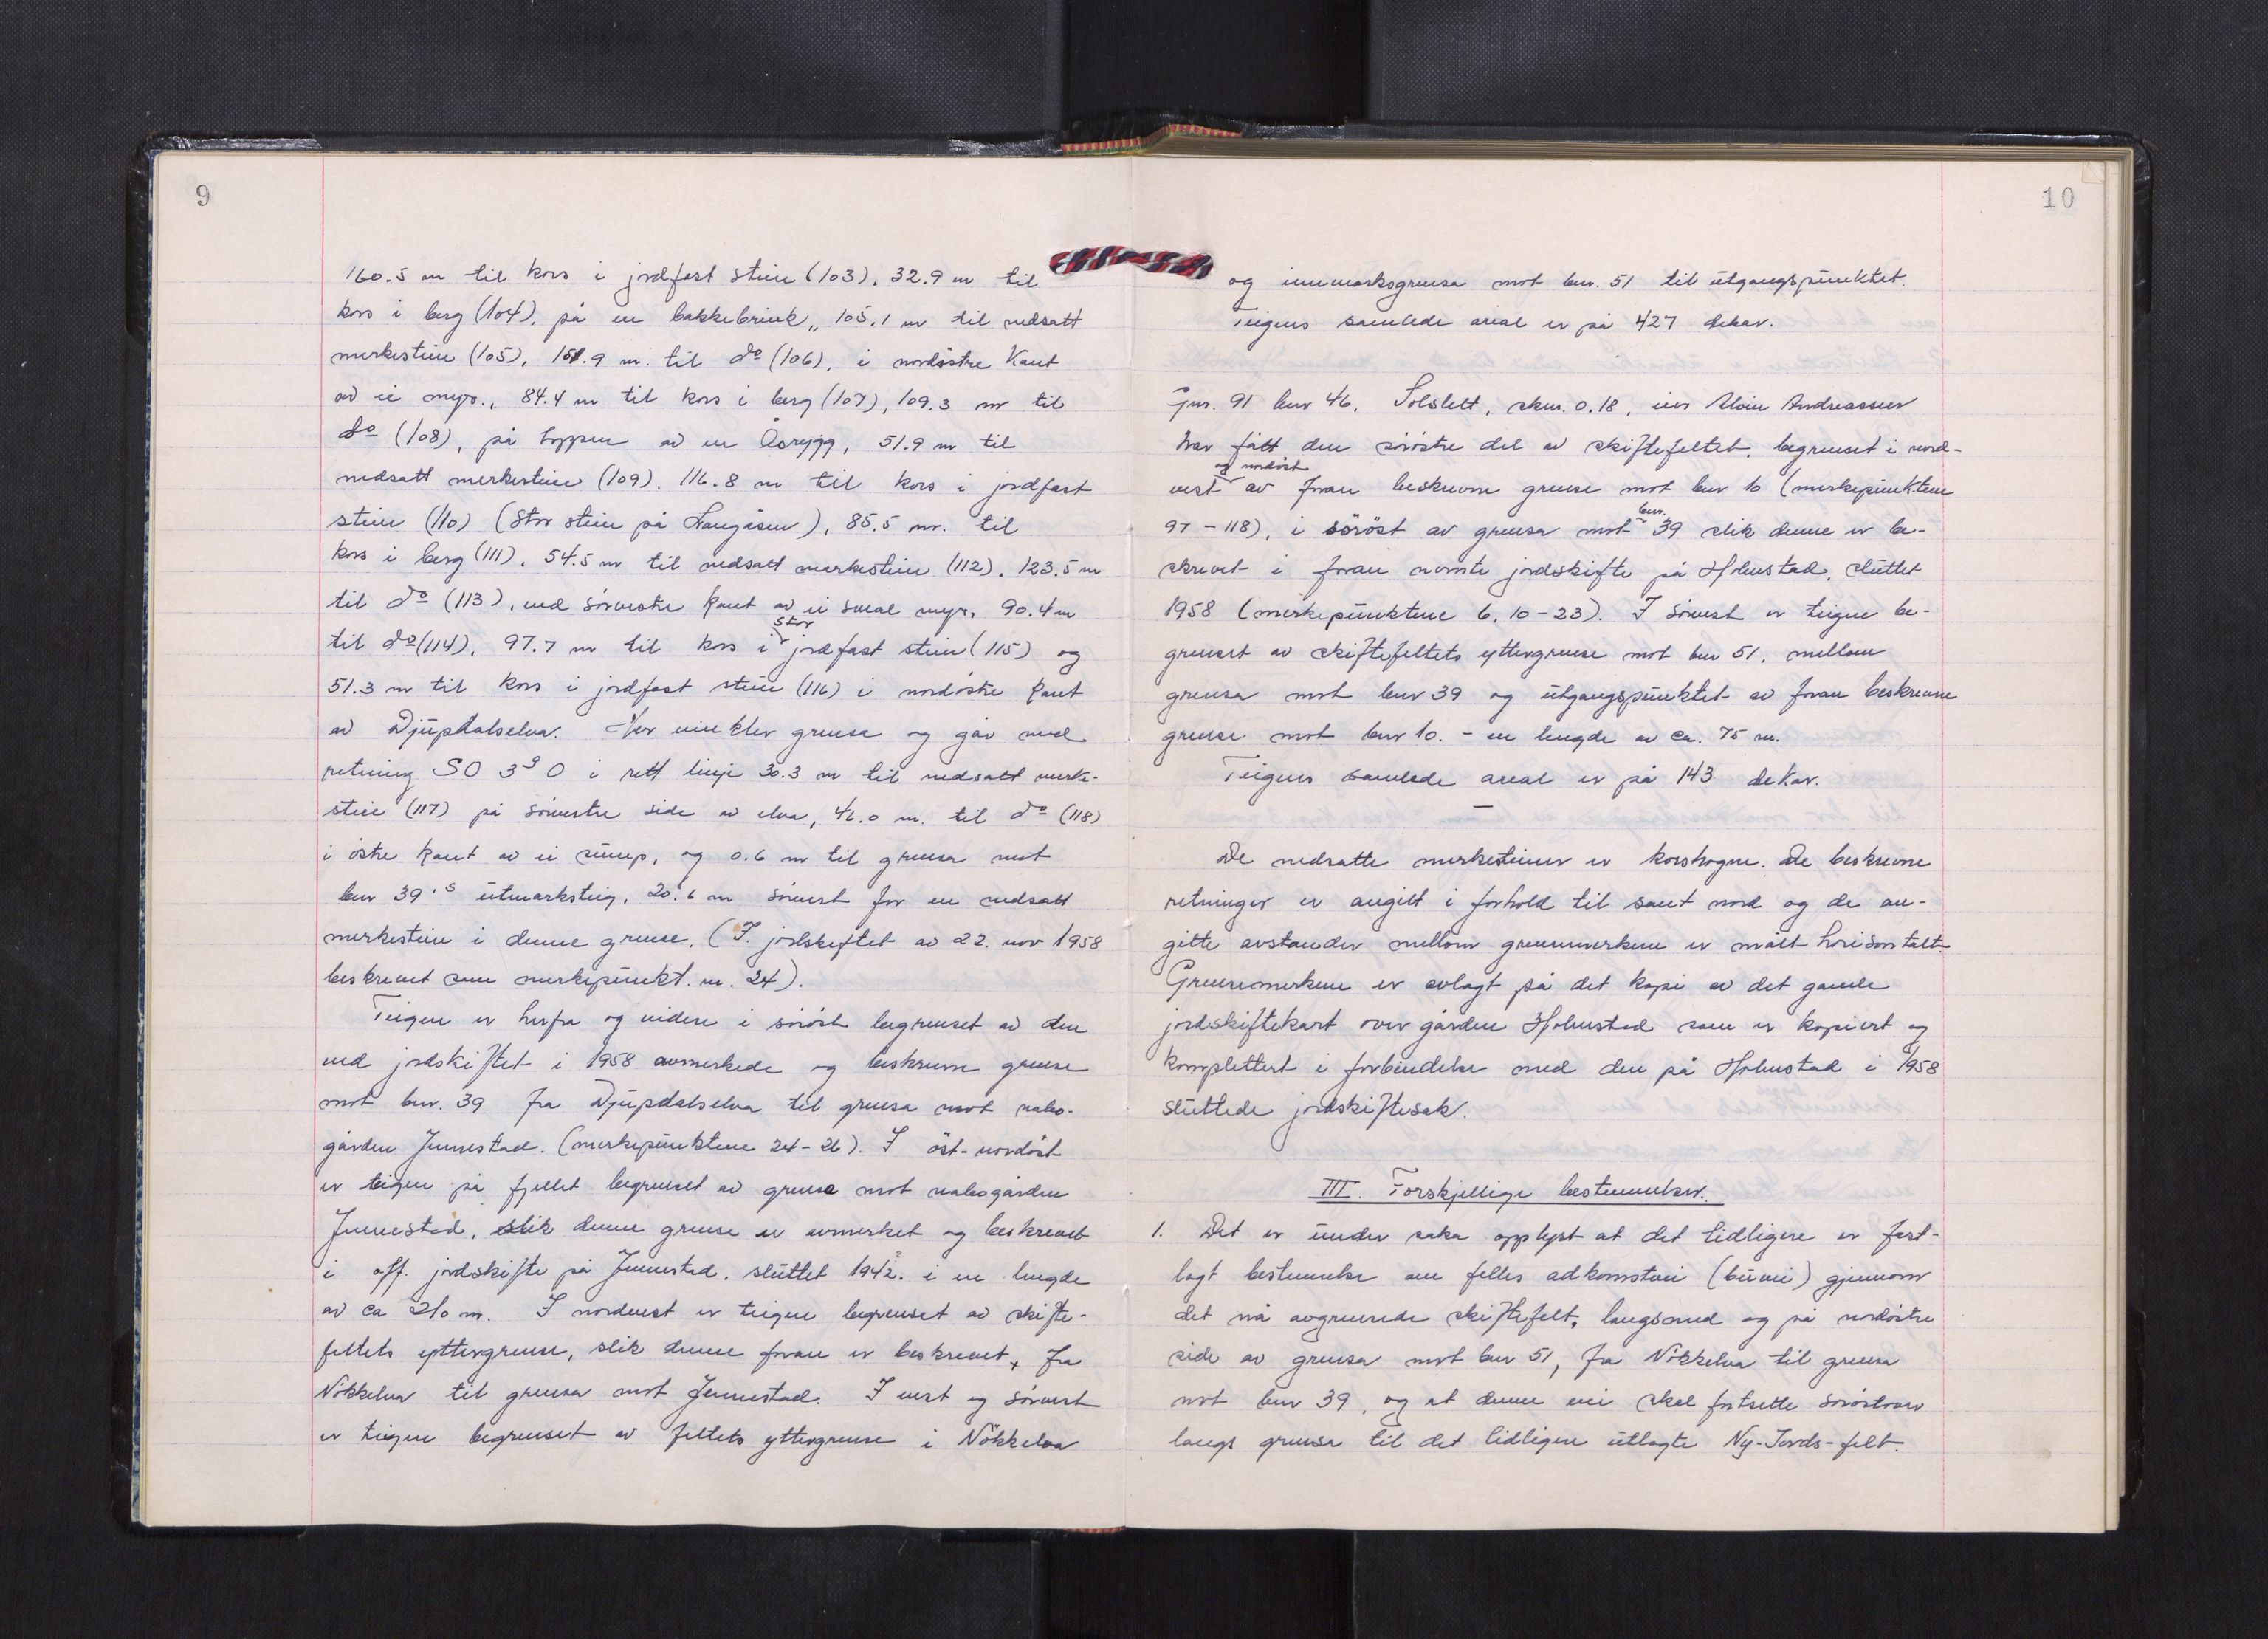 9
160.5 m til kors i jordfast stein (103), 32.9 m til
kors i berg (104), på en bakkebrink, 105.1 m til nedsatt
merkestein (105), 151.9 m. til do (106), i nordöstre kant
av ei myr., 84.4 m til kors i berg (107), 109.3 m til
do (108), på toppen av en Åsrygg, 51.9 m til
nedsatt merkestein (109), 116.8 m til kors i jordfast
stein (110) (Stor stein på Langåsen), 85.5 m. til
kors i berg (111), 54.5 m til nedsatt merkestein (112), 123.5 m
til do (113), ved sörvestre kant av ei smal myr, 90.4 m
til do (114), 97.7 m til kors i stor jordfast stein (115) og
51.3 m til kors i jordfast stein (116) i nordöstre kant
av Djupdalselva. Her vinkler grensa og går med
retning SO 3g O i rett linje 30.3 m til nedsatt merke-
stein (117) på sörvestre side av elva, 46.0 m. til do (118)
i östre kant av ei sump, og 0.6 m til grensa mot
bnr 39's utmarksteig, 20.6 m sörvest for en nedsatt
merkestein i denne grense. (I jordskiftet av 22. nov 1958
beskrevet som merkepunkt nr. 24).
Teigen er herfra og videre i söröst begrenset av den
ved jordskiftet i 1958 avmerkede og beskrevne grense
mot bnr. 39 fra Djupdalselva til grensa mot nabo-
gården Jennestad. (merkepunktene 24-26). I öst-nordöst
er teigen på fjellet begrenset av grense mot nabogården
Jennestad, slik denne grense er avmerket og beskrevet
i off. jordskifte på Jennestad, sluttet 1942. i en lengde
av ca 210 m. I nordvest er teigen begrenset av skifte-
feltets yttergrense, slik denne foran er beskrevet, fra
Nökkelva til grensa mot Jennestad. I vest og sörvest
er teigen begrenset av feltets yttergrense i Nökkelva
10
og innmarksgrensa mot bnr. 51 til utgangspunktet.
Teigens samlede areal er på 427 dekar.
Gnr. 91 bnr 46, Solslett, skm. 0.18, eier Alvin Andreassen
har fått den söröstre del av skiftefeltet, begrenset i nord-
vest og nordöst av foran beskrevne grense mot bnr 10 (merkepunktene
97-118), i söröst av grensa mot bnr. 39 slik denne er be-
skrevet i foran nevnte jordskifte på Holmstad, sluttet
1958 (merkepunktene 6, 10-23). I sörvest er teigen be-
grenset av skiftefeltets yttergrense mot bnr 51, mellom
grensa mot bnr 39 og utgangspunktet av foran beskrevne
grense mot bnr 10. - en lengde av ca. 75 m.
Teigens samlede areal er på 143 dekar.
De nedsatte merkesteiner er korshogne. De beskrevne
retninger er angitt i forhold til sant nord og de an-
gitte avstander mellom grensemerkene er målt horisontalt.
Grensemerkene er avlagt på det kopi av det gamle
jordskiftekart over gården Holmstad som er kopiert og
komplettert i forbindelse med den på Holmstad i 1958
sluttede jordskiftesak.
III. Forskjellige bestemmelser.
1. Det er under saka opplyst at det tidligere er fast-
lagt bestemmelse om felles adkomstvei (buvei) gjennom
det nå avgrensede skiftefelt, langsmed og på nordöstre
side av grensa mot bnr 51, fra Nökkelva til grensa
mot bnr 39, og at denne vei skal fortsette söröstover
langs grensa til det tidligere utlagte Ny-Jords-felt.